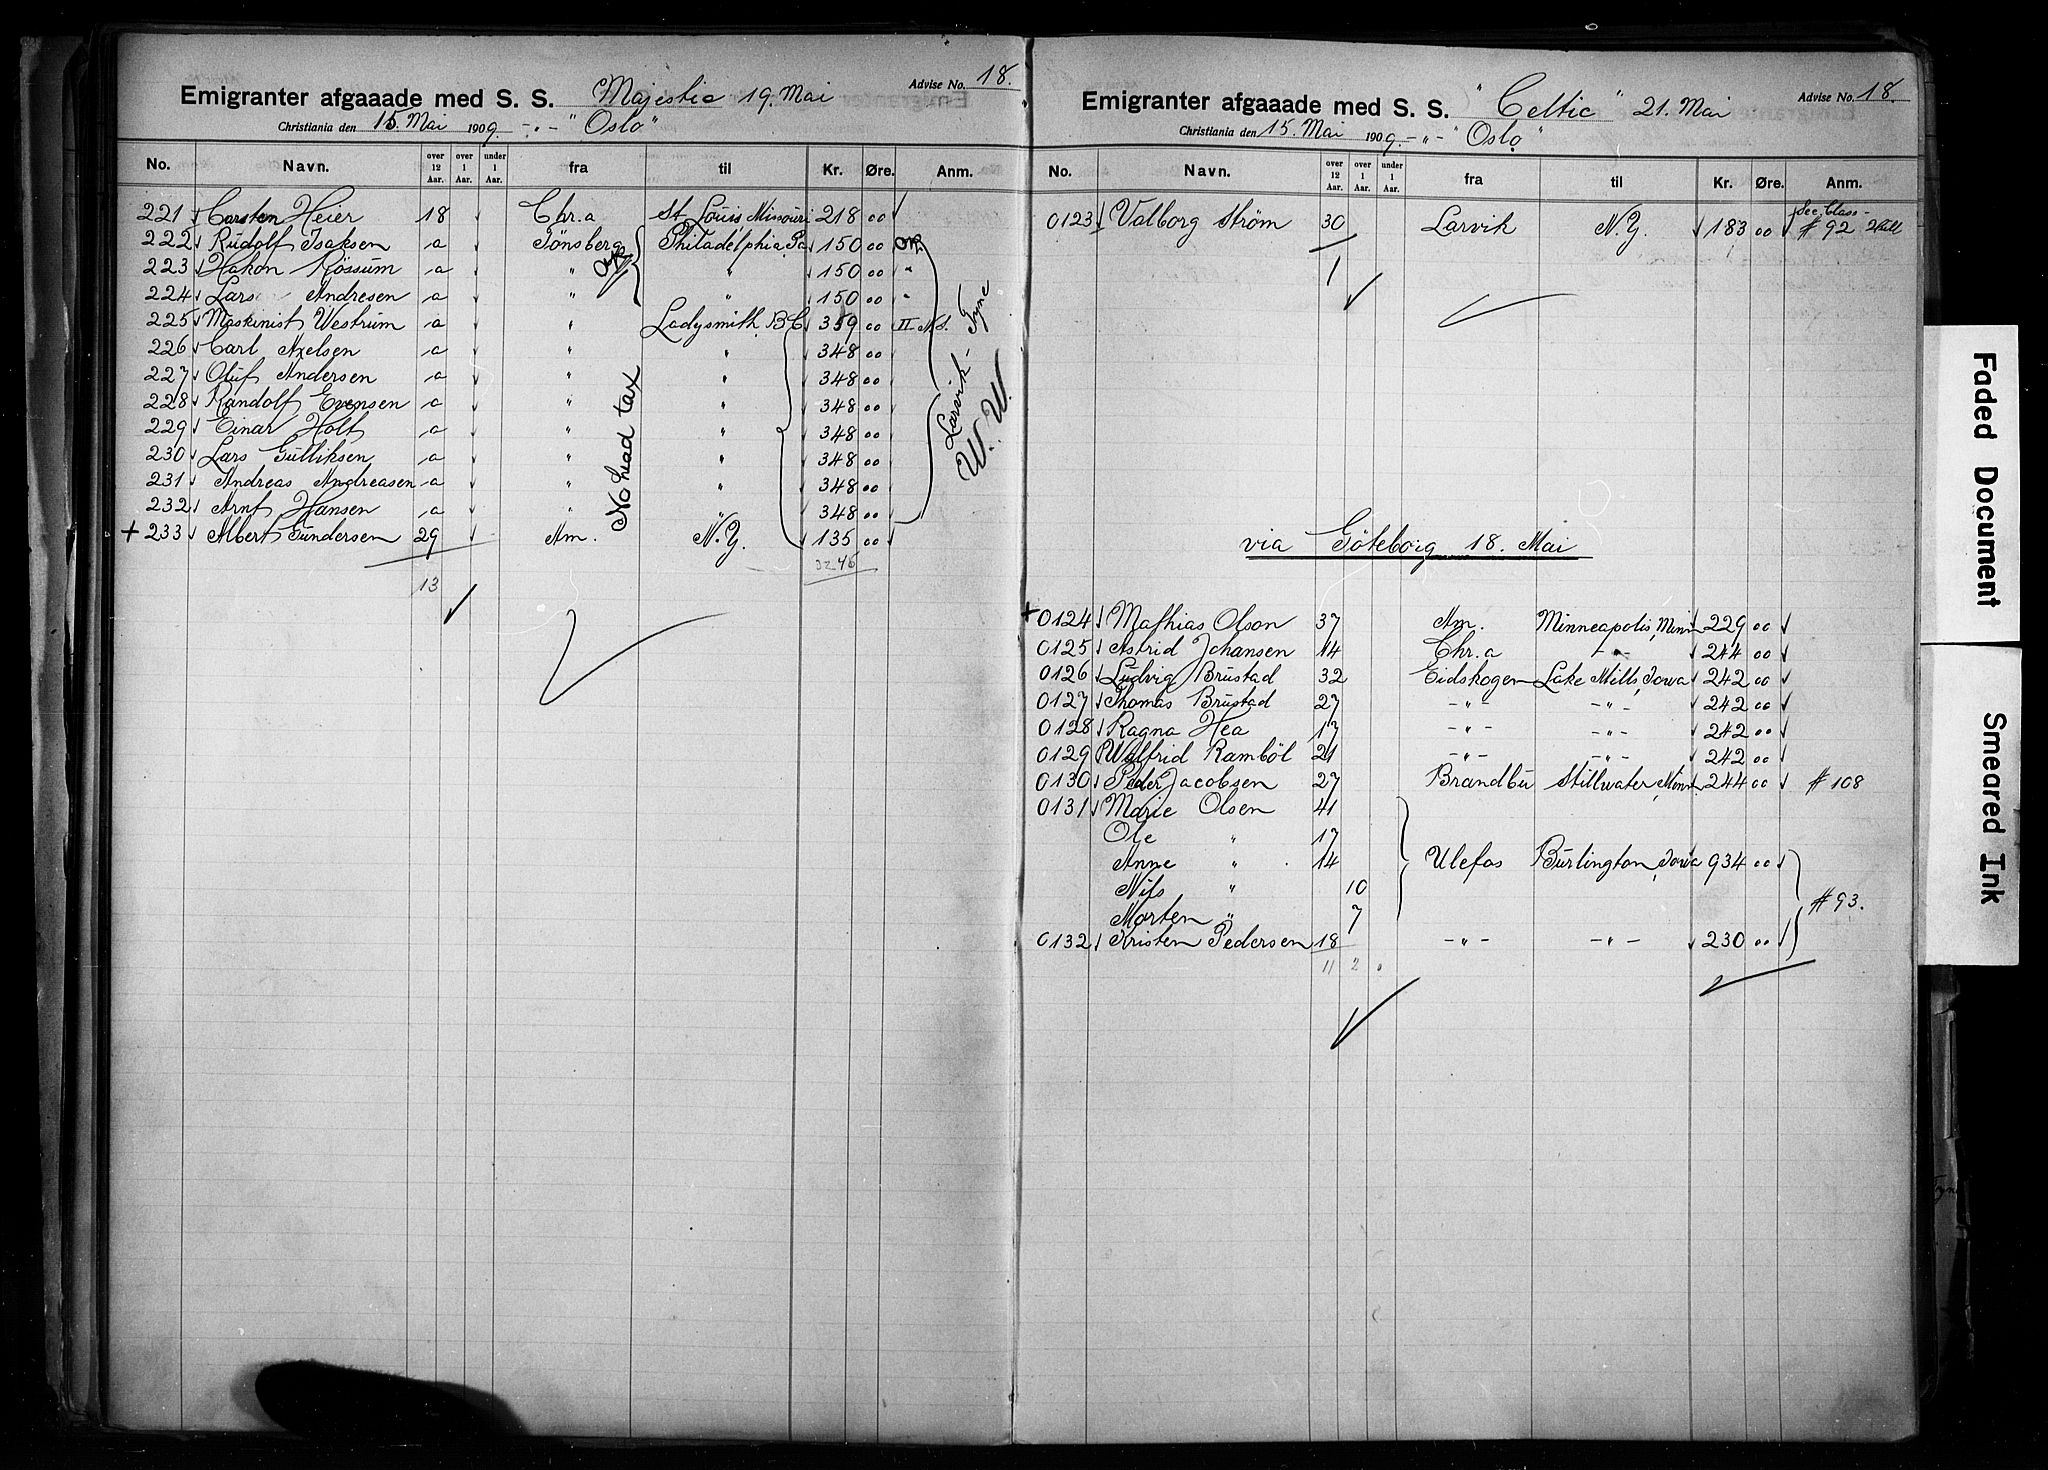 Emigranter afgaaade med S. S. Majestic 19. Mai Advise No. 18.
Christiania den 15. Mai 1909 -"- "Oslo"
No. Navn. over 12 Aar. over 1 Aar. under 1 Aar. fra til Kr. Øre. Anm.
221 Carsten Heier 18 Chr.a St. Louis Missouri 218 00
222 Rudolf Isaksen a Tönsberg Philadelphia Pa 150 00
223 Hakon Rössum a " " 150 00 "
224 Lars Andresen a " " 150 00 "
225 Maskinist Westrum a " Ladysmith B.C. 359 00 II
226 Carl Axelsen a " " 348 00
227 Oluf Andersen a " " 348 00
228 Randolf Evensen a " " 348 00
229 Einar Holt a " " 348 00
230 Lars Gulliksen a " " 348 00
231 Andreas Andreasen a " " 348 00
232 Arnt Hansen a " " 348 00
+ 233 Albert Gundersen 29 Am. N.Y. 135 00
13
No head tax
Larvik - Tyne
W. W.
Emigranter afgaaade med S. S. "Celtic" 21. Mai Advise No. 18.
Christiania den 15. Mai 1909. -"- "Oslo"
No. Navn. over 12 Aar. over 1 Aar. under 1 Aar. fra til Kr. Øre. Anm.
0123 Valborg Ström 30 Larvik N.Y. 183 00 Sec. Class # 92
1
via Göteborg 18. Mai
+ 0124 Mathias Olson 37 Am. Minneapolis, Minn 229 00
0125 Astrid Johansen 14 Chr.a -"- 244 00
0126 Ludvig Brustad 32 Eidskogen Lake Mills, Iowa 242 00
0127 Thomas Brustad 27 -"- -"- 242 00
0128 Ragna Hea 17 -"- -"- 242 00
0129 Walfrid Ramböl 21 -"- -"- 242 00
0130 Peder Jacobsen 27 Brandbu Stillwater, Minn 244 00 # 108
0131 Marie Olsen 41
Ole " 17
Anne " 14 Ulefos Burlington, Iowa 934 00
Nils " 10
Morten " 7 # 93.
0132 Kristen Pedersen 18 -"- -"- 230 00
11 2
Faded Document
Smeared Ink